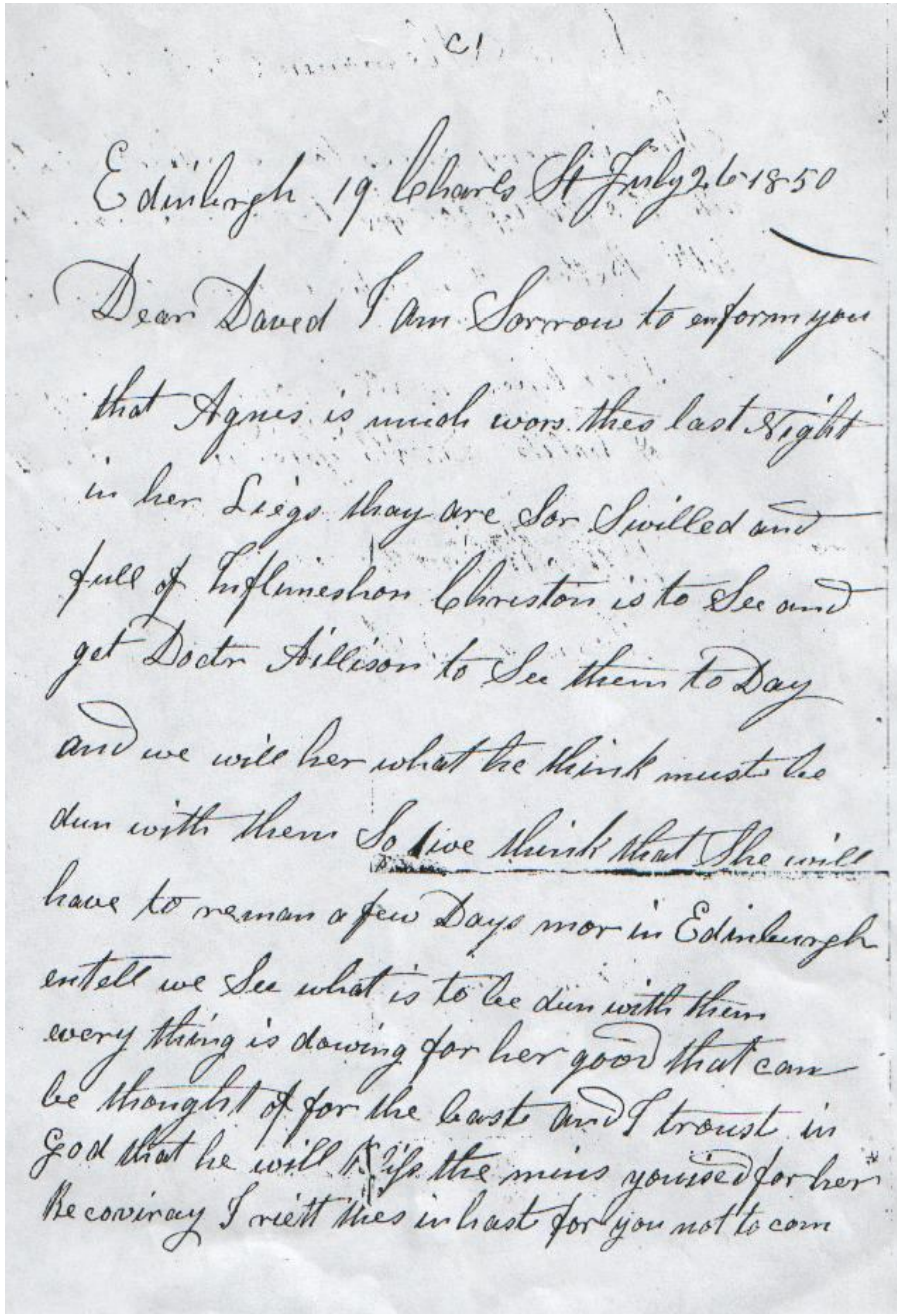 C1
Edinburgh 19 Charls St July 26 1850
Dear Daved I am Sorrow to enform you
that Agnes is much wors thes last Night
in her Liegs thay are Sor Swilled and
full of Inflimeshon Christon is to See and
get Doctr Aillison to See them to Day
and we will her what he think must be
dun with them So we think that She will
have to reman a few Days mor in Edinburgh
entell we See what is to be dun with them
every thing is dowing for her good that can
be thought of for the bast and I troust in
God that he will the mins youised for her
Recoviray I riett thes in hast for you not to com